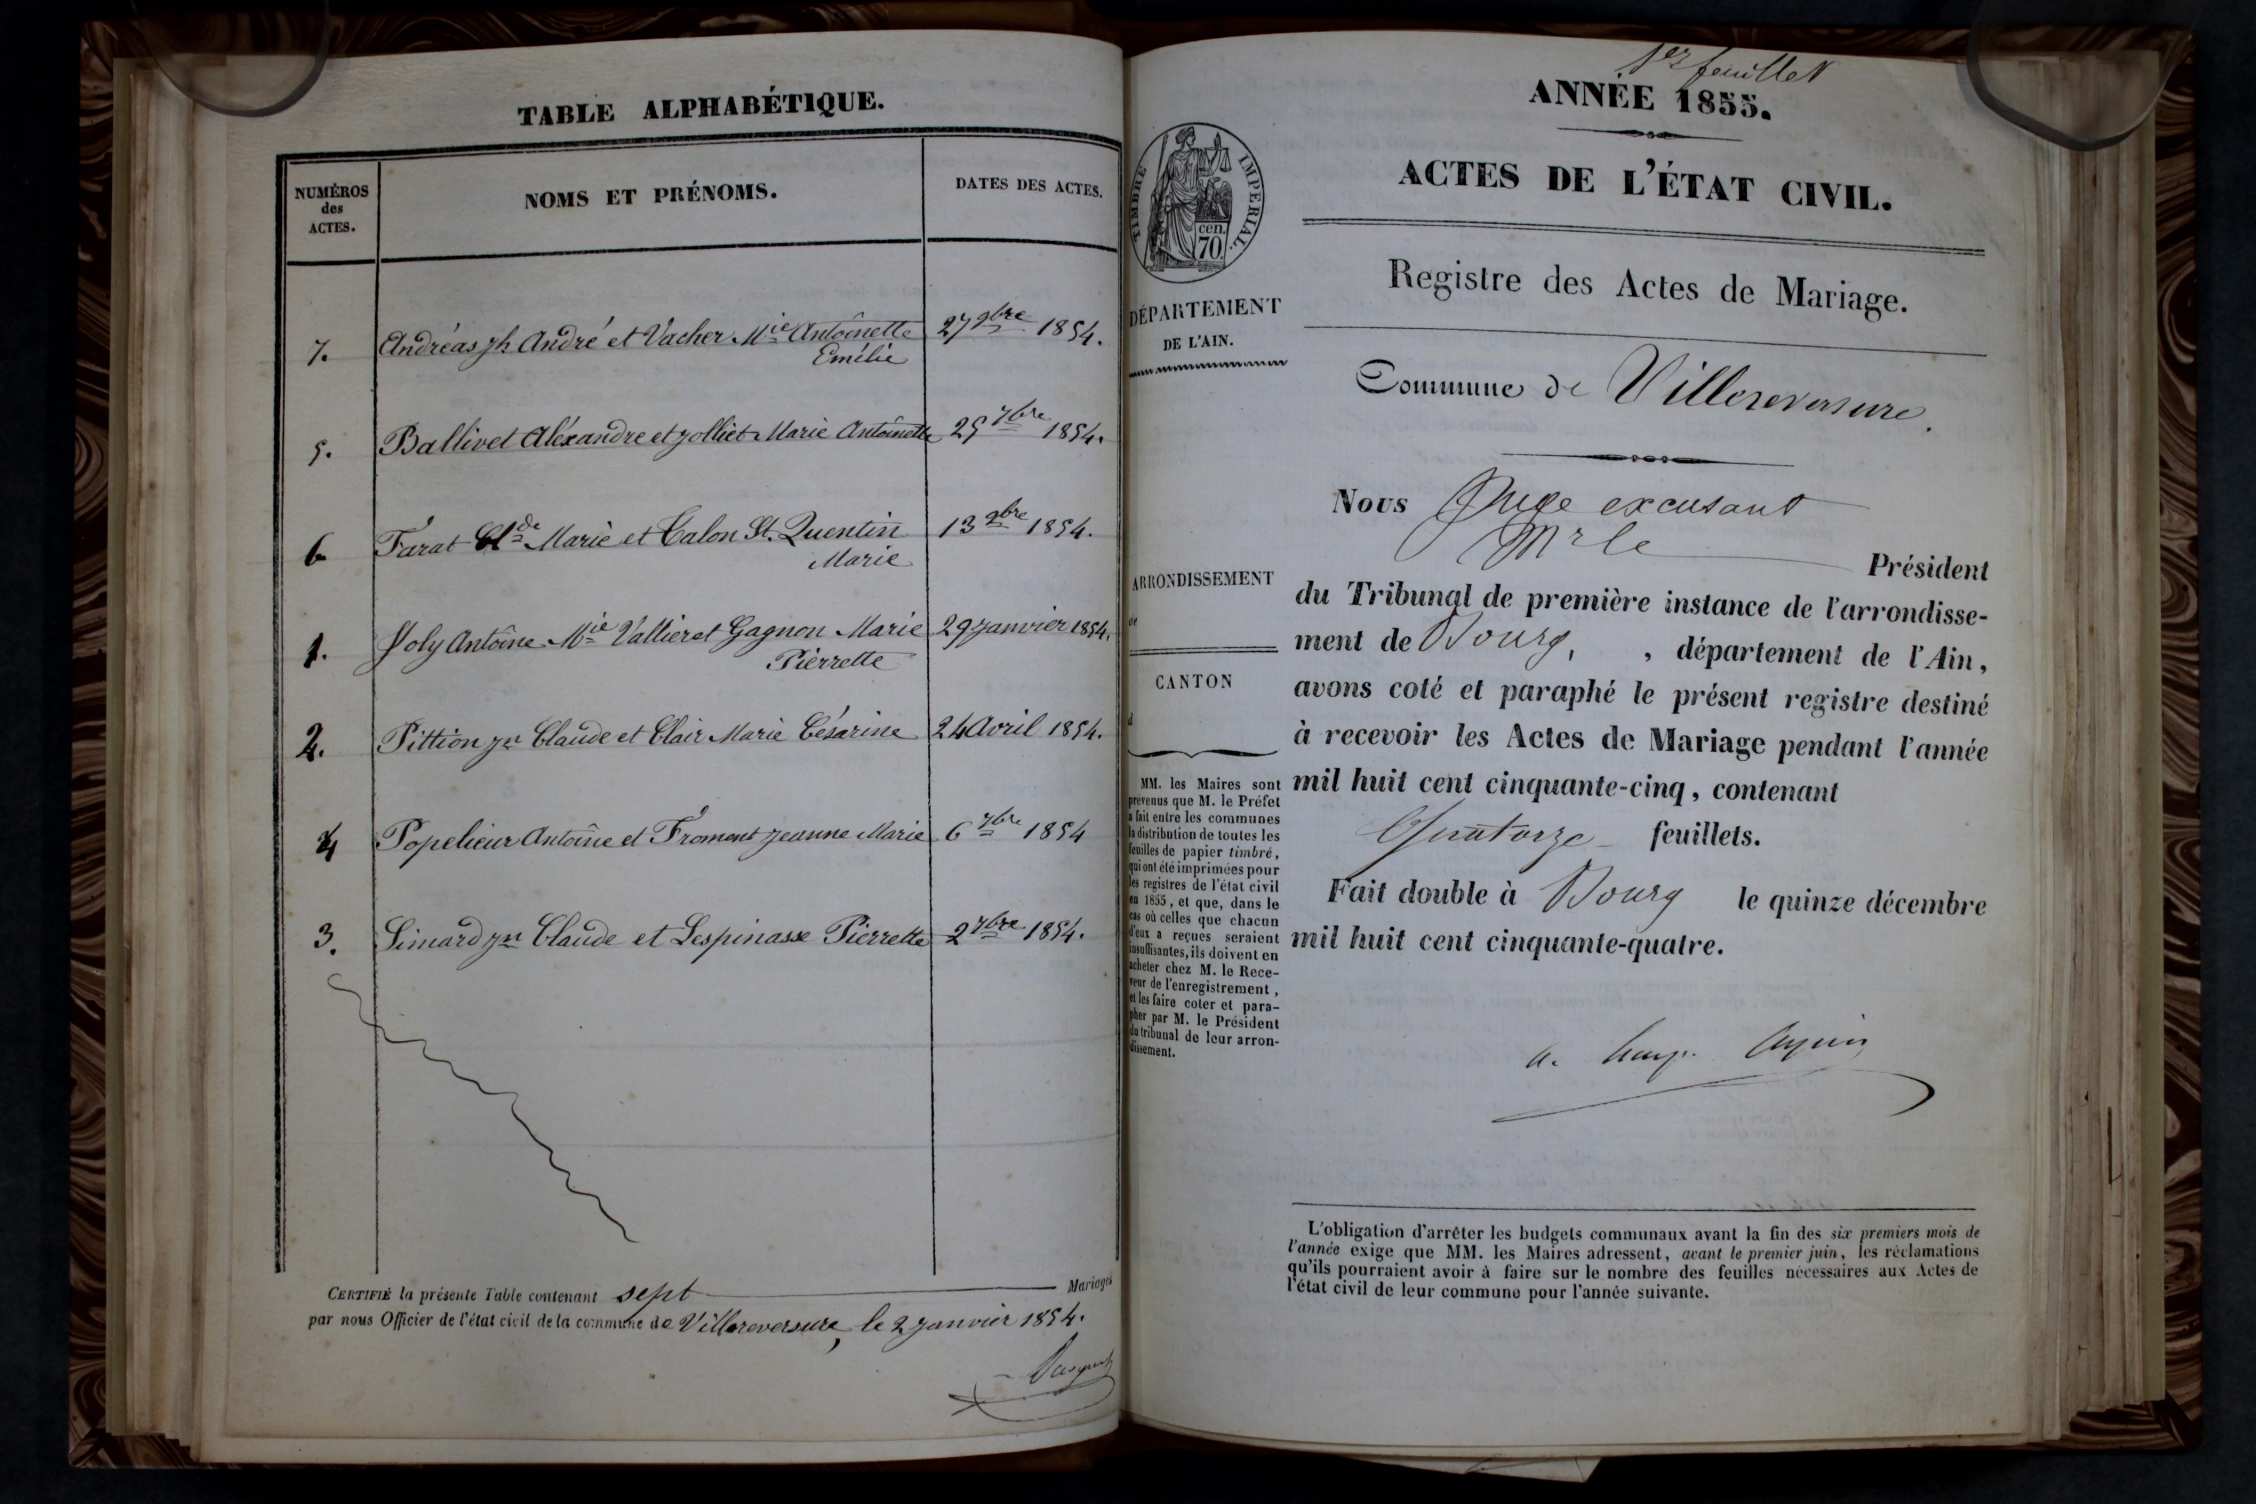 TABLE ALPHABÉTIQUE.
NUMÉROS
des
ACTES.
NOMS ET PRÉNOMS.
DATES DES ACTES.
7. Andréas jh André et Vacher Mie Antoinette 27 9bre 1854.
Emélie
5. Ballivet Aléxandre et Jolliet Marie Antoinette 25 7bre 1854.
6 Farat Clde Marie et Calon St. Quentin 13 9bre 1854.
Marie
1. Joly Antoine Mie Vallier et Gagnon Marie 29 Janvier 1854.
Pierrette
2. Pittion jn Claude et Clair Marie Césarine 24 Avril 1854.
4 Popelieur Antoine et Froment Jeanne Marie 6 7bre 1854
3. Simard jn Claude et Lespinasse Pierrette 2 7bre 1854.
CERTIFIÉ la présente Table contenant sept Mariages
par nous Officier de l'état civil de la commune de Villereversure, le 2 Janvier 1854.
1er feuillet
ANNÉE 1855.
ACTES DE L'ÉTAT CIVIL.
TIMBRE IMPÉRIAL.
cen.
70
Registre des Actes de Mariage.
DÉPARTEMENT
DE L'AIN.
Commune de Villereversure.
Nous Juge excusant
Mr le
Président
ARRONDISSEMENT
de
CANTON
d
du Tribunal de première instance de l'arrondisse-
ment de Bourg, , département de l'Ain,
avons coté et paraphé le présent registre destiné
à recevoir les Actes de Mariage pendant l'année
mil huit cent cinquante-cinq, contenant
Quatorze feuillets.
Fait double à Bourg le quinze décembre
mil huit cent cinquante-quatre.
MM. les Maires sont
prévenus que M. le Préfet
a fait entre les communes
la distribution de toutes les
feuilles de papier timbré,
qui ont été imprimées pour
les registres de l'état civil
en 1855, et que, dans le
cas où celles que chacun
d'eux a reçues seraient
insuffisantes, ils doivent en
acheter chez M. le Rece-
veur de l'enregistrement,
et les faire coter et para-
pher par M. le Président
du tribunal de leur arron-
dissement.
L'obligation d'arrêter les budgets communaux avant la fin des six premiers mois de
l'année exige que MM. les Maires adressent, avant le premier juin, les réclamations
qu'ils pourraient avoir à faire sur le nombre des feuilles nécessaires aux Actes de
l'état civil de leur commune pour l'année suivante.